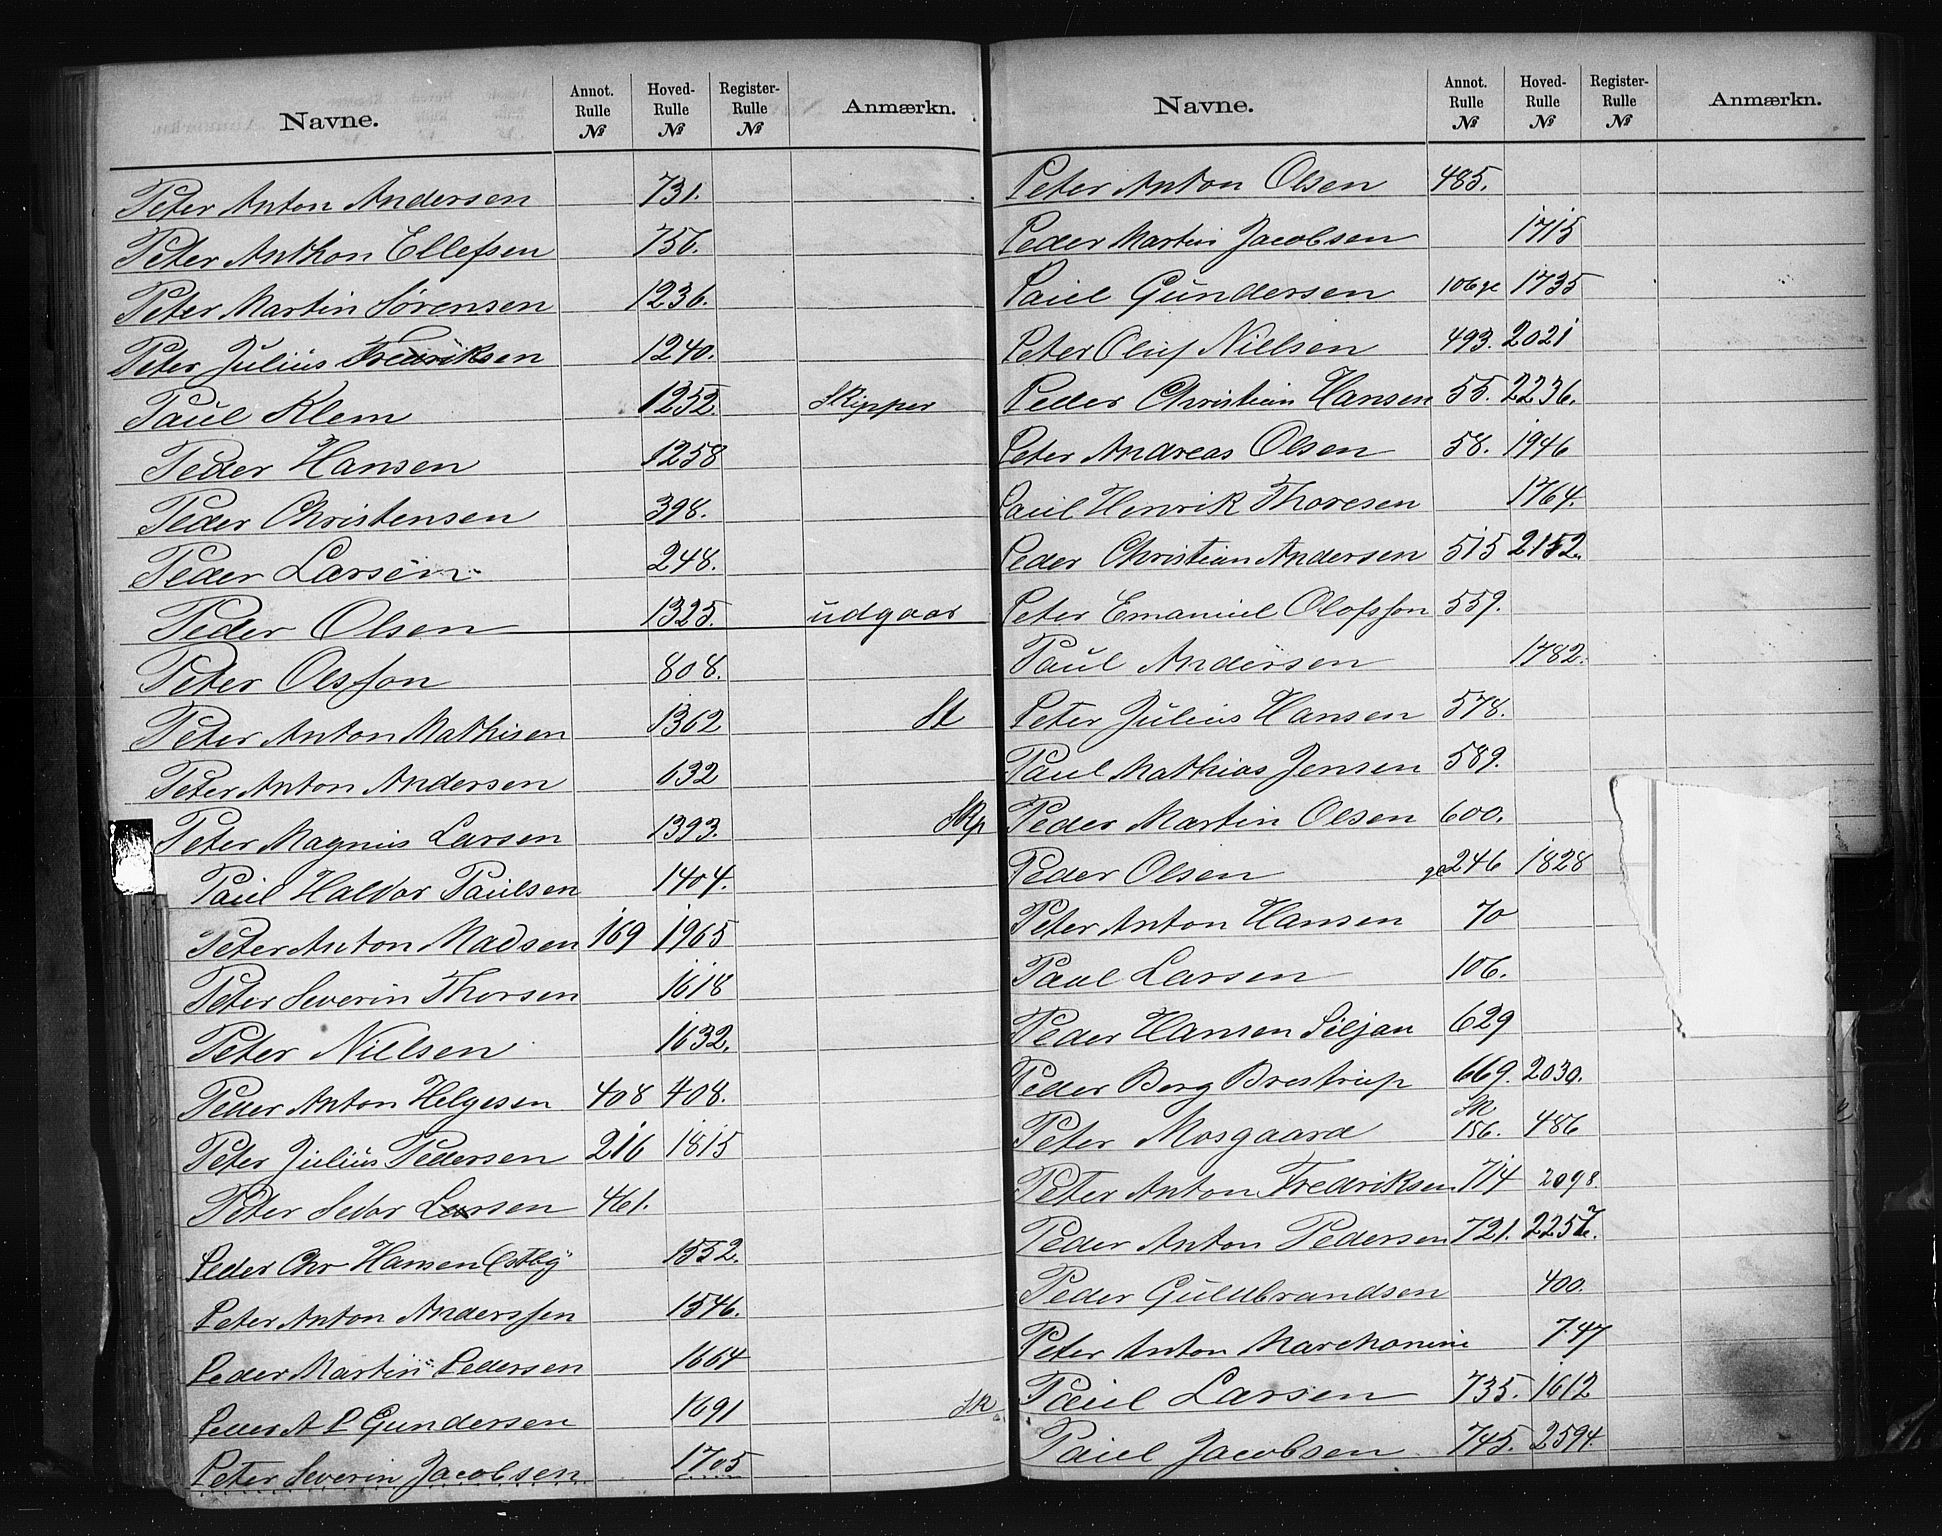 Navne. Annot. Rulle № Hoved-Rulle № Register-Rulle № Anmærkn.
Peter Anton Andersen 731.
Peter Anthon Ellefsen 756.
Peter Martin Sörensen 1236.
Peter Julius Fredriksen 1240.
Paul Klem 1252 Skipper
Peder Hansen 1258
Peder Christensen 398.
Peder Larsen 248.
Peder Olsen 1325. udgaar
Peter Olsson 808.
Peter Anton Mathisen 1362 St
Peter Anton Andersen 632
Peter Magnus Larsen 1393. Skp
Paul Haldor Paulsen 1404.
Peter Anton Madsen 169 1965
Peter Severin Thorsen 1618
Peter Nielsen 1632.
Peder Anton Helgesen 408 408.
Peter Julius Pedersen 216 1815
Peter Sevar Larsen 461.
Peder Chr Hansen Østby 1552.
Peter Anton Anderssen 1546.
Peder Martin Pedersen 1664
Peder A P Gundersen 1691 Sk
Peter Severin Jacobsen 1705
Navne. Annot. Rulle № Hoved-Rulle № Register-Rulle № Anmærkn.
Peter Anton Olsen 485.
Peder Martin Jacobsen 1715
Paul Gundersen 106 1735
Peter Oluf Nielsen 493. 2021
Peder Christian Hansen 55. 2236.
Peter Andreas Olsen 58. 1946
Paul Henrik Thoresen 1764.
Peder Christian Andersen 515 2152.
Peter Emanuel Olofsson 559.
Paul Andersen 1782.
Peter Julius Hansen 578.
Paul Mathias Jensen 589.
Peder Martin Olsen 600.
Peder Olsen 246 1828
Peter Anton Hansen 70
Paul Larsen 106.
Peder Hansen Siljan 629
Peder Borg Brestrup 669. 2030.
Peter Mosgaard Sk 156. 486
Peter Anton Fredriksen 714 2098
Peder Anton Pedersen 721. 2257.
Peder Guldbrandsen 400.
Peter Anton Marchonini 747
Paul Larsen 735. 1612
Paul Jacobsen 745. 2594.